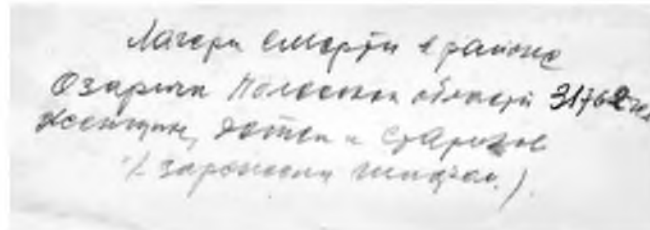 Лагери смерти в районе
Озаричи Полесской области 31762 чел
женщин, детей и стариков
(заронсены тифом.)